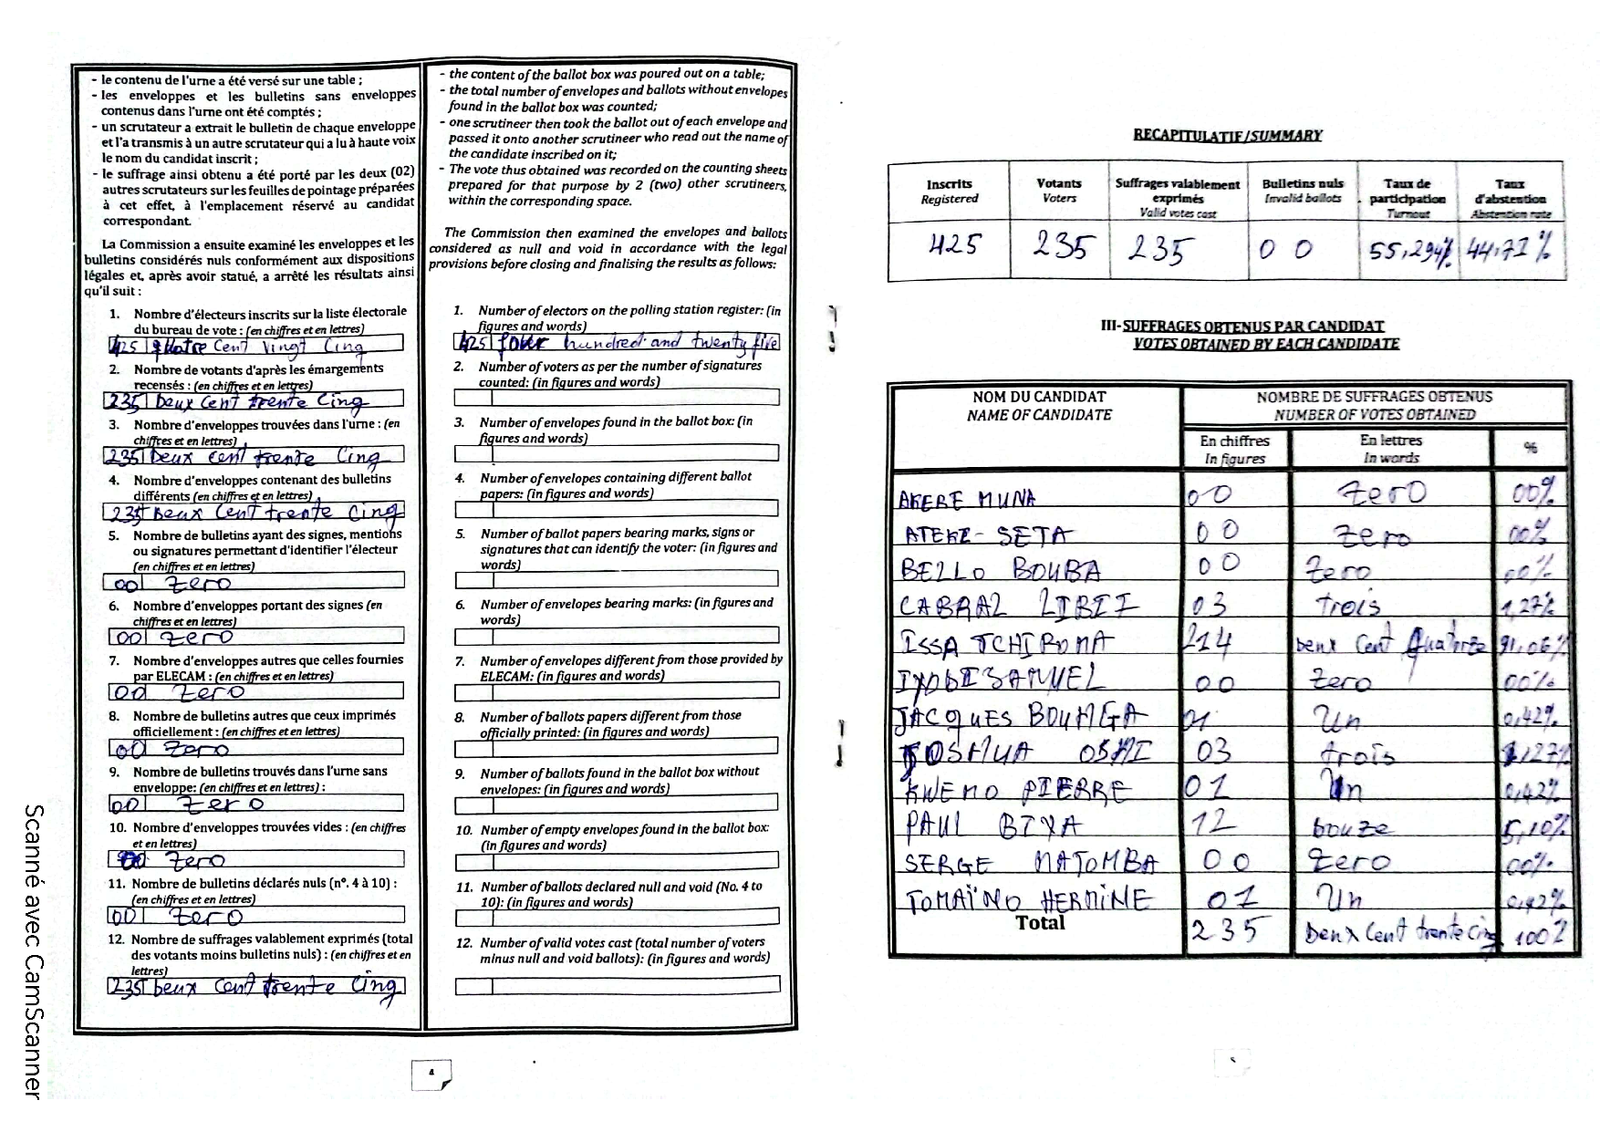 - le contenu de l'urne a été versé sur une table ;
- les enveloppes et les bulletins sans enveloppes
contenus dans l'urne ont été comptés ;
- un scrutateur a extrait le bulletin de chaque enveloppe
et l'a transmis à un autre scrutateur qui a lu à haute voix
le nom du candidat inscrit ;
- le suffrage ainsi obtenu a été porté par les deux (02)
autres scrutateurs sur les feuilles de pointage préparées
à cet effet, à l'emplacement réservé au candidat
correspondant.
La Commission a ensuite examiné les enveloppes et les
bulletins considérés nuls conformément aux dispositions
légales et, après avoir statué, a arrêté les résultats ainsi
qu'il suit :
1. Nombre d'électeurs inscrits sur la liste électorale
du bureau de vote : (en chiffres et en lettres)
425 quatre Cent Vingt Cinq
2. Nombre de votants d'après les émargements
recensés : (en chiffres et en lettres)
235 Deux Cent trente Cinq
3. Nombre d'enveloppes trouvées dans l'urne : (en
chiffres et en lettres)
235 Deux Cent trente Cinq
4. Nombre d'enveloppes contenant des bulletins
différents (en chiffres et en lettres)
235 Deux Cent trente Cinq
5. Nombre de bulletins ayant des signes, mentions
ou signatures permettant d'identifier l'électeur
(en chiffres et en lettres)
00 Zero
6. Nombre d'enveloppes portant des signes (en
chiffres et en lettres)
00 Zero
7. Nombre d'enveloppes autres que celles fournies
par ELECAM : (en chiffres et en lettres)
00 Zero
8. Nombre de bulletins autres que ceux imprimés
officiellement : (en chiffres et en lettres)
00 Zero
9. Nombre de bulletins trouvés dans l'urne sans
enveloppe: (en chiffres et en lettres) :
00 Zero
10. Nombre d'enveloppes trouvées vides : (en chiffres
et en lettres)
00 Zero
11. Nombre de bulletins déclarés nuls (n°. 4 à 10) :
(en chiffres et en lettres)
00 Zero
12. Nombre de suffrages valablement exprimés (total
des votants moins bulletins nuls) : (en chiffres et en
lettres)
235 Deux Cent trente Cinq
- the content of the ballot box was poured out on a table;
- the total number of envelopes and ballots without envelopes
found in the ballot box was counted;
- one scrutineer then took the ballot out of each envelope and
passed it onto another scrutineer who read out the name of
the candidate inscribed on it;
- The vote thus obtained was recorded on the counting sheets
prepared for that purpose by 2 (two) other scrutineers,
within the corresponding space.
The Commission then examined the envelopes and ballots
considered as null and void in accordance with the legal
provisions before closing and finalising the results as follows:
1. Number of electors on the polling station register: (in
figures and words)
425 four hundred and twenty five
2. Number of voters as per the number of signatures
counted: (in figures and words)
3. Number of envelopes found in the ballot box: (in
figures and words)
4. Number of envelopes containing different ballot
papers: (in figures and words)
5. Number of ballot papers bearing marks, signs or
signatures that can identify the voter: (in figures and
words)
6. Number of envelopes bearing marks: (in figures and
words)
7. Number of envelopes different from those provided by
ELECAM: (in figures and words)
8. Number of ballots papers different from those
officially printed: (in figures and words)
9. Number of ballots found in the ballot box without
envelopes: (in figures and words)
10. Number of empty envelopes found in the ballot box:
(in figures and words)
11. Number of ballots declared null and void (No. 4 to
10): (in figures and words)
12. Number of valid votes cast (total number of voters
minus null and void ballots): (in figures and words)
4
RECAPITULATIF/SUMMARY
Inscrits Registered | Votants Voters | Suffrages valablement exprimés Valid votes cast | Bulletins nuls Invalid ballots | Taux de participation Turnout | Taux d'abstention Abstention rate
425 235 235 0 0 55,294% 44,71%
III- SUFFRAGES OBTENUS PAR CANDIDAT
VOTES OBTAINED BY EACH CANDIDATE
NOM DU CANDIDAT NOMBRE DE SUFFRAGES OBTENUS
NAME OF CANDIDATE NUMBER OF VOTES OBTAINED
En chiffres En lettres %
In figures In words
AKERE MUNA 00 Zero 00%
ATEKI- SETA 00 Zero 00%
BELLO BOUBA 00 Zero 00%
CABRAL LIBII 03 trois 1,27%
ISSA TCHIROMA 214 Deux Cent Quatorze 91,06%
00 Zero 00%
JACQUES BOUNGA 01 Un 0,42%
JOSHUA OSHI 03 trois 1,27%
KWEMO PIERRE 01 Un 0,42%
PAUL BIYA 12 Douze 5,10%
SERGE MATOMBA 00 Zero 00%
TOMAÏNO HERMINE 01 Un 0,42%
Total 235 Deux Cent trente Cinq 100%
Scanné avec CamScanner